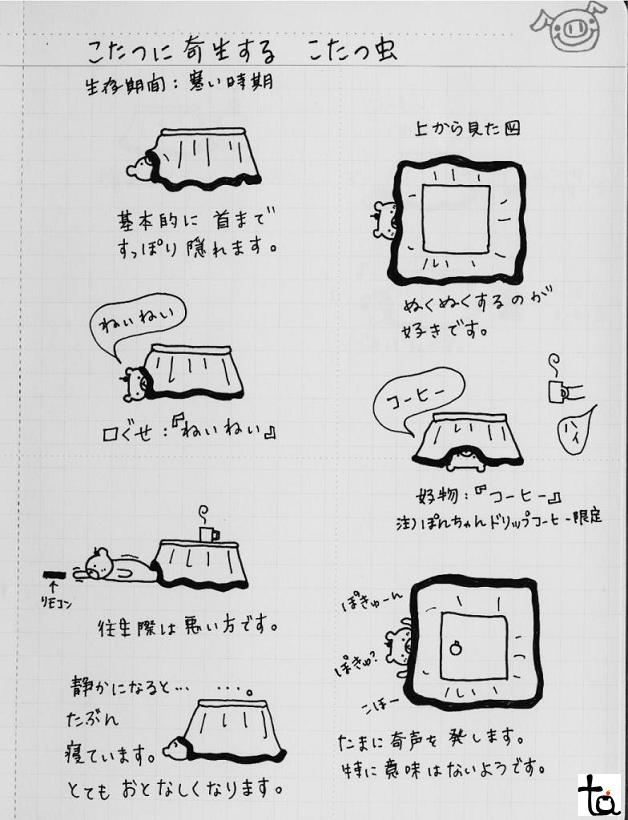 こたつに寄生する こたつ虫
生存期間：寒い時期
基本的に首まで
すっぽり隠れます。
上から見た図
ぬくぬくするのが
好きです。
ねぃねぃ
口ぐせ：『ねぃねぃ』
コーヒー
ハイ
好物：『コーヒー』
注)ぽんちゃんドリップコーヒー限定
リモコン
往生際は悪い方です。
ぽきゅーん
ぽきゅ?
こほー
たまに奇声を発します。
特に意味はないようです。
静かになると… …。
たぶん
寝ています。
とてもおとなしくなります。
ta